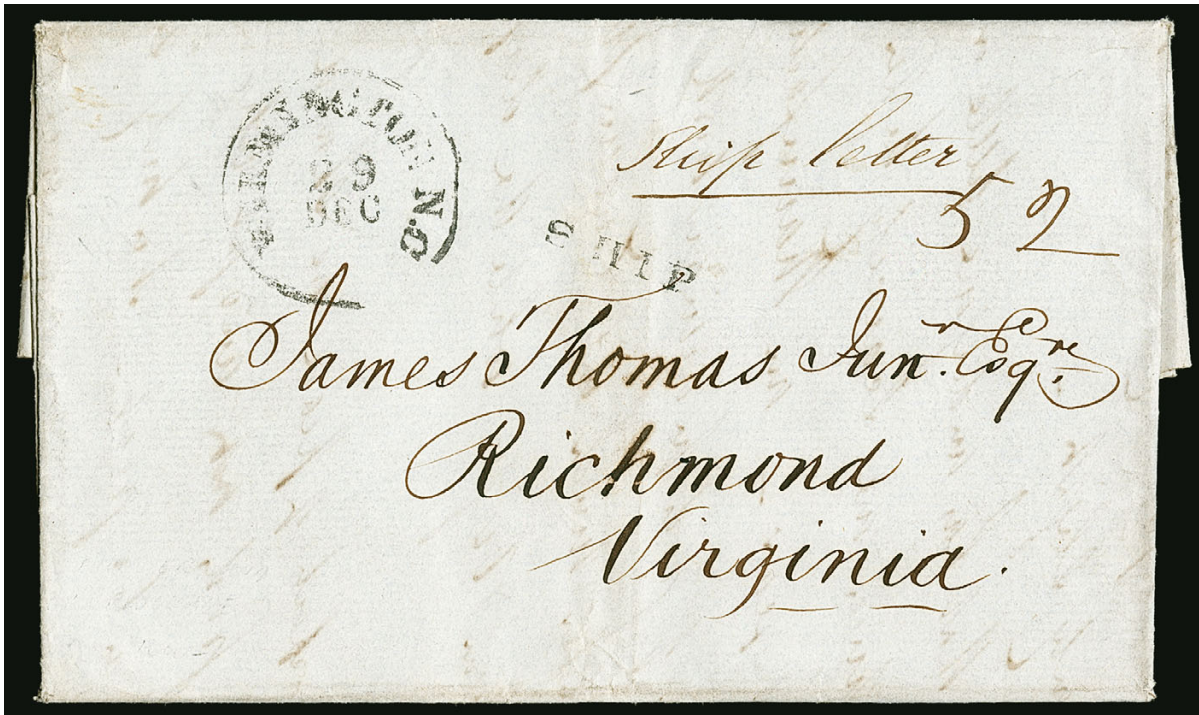 WILMINGTON N.C.
29
DEC
Ship letter
5 2
SHIP
James Thomas Junr. Esqre.
Richmond
Virginia.